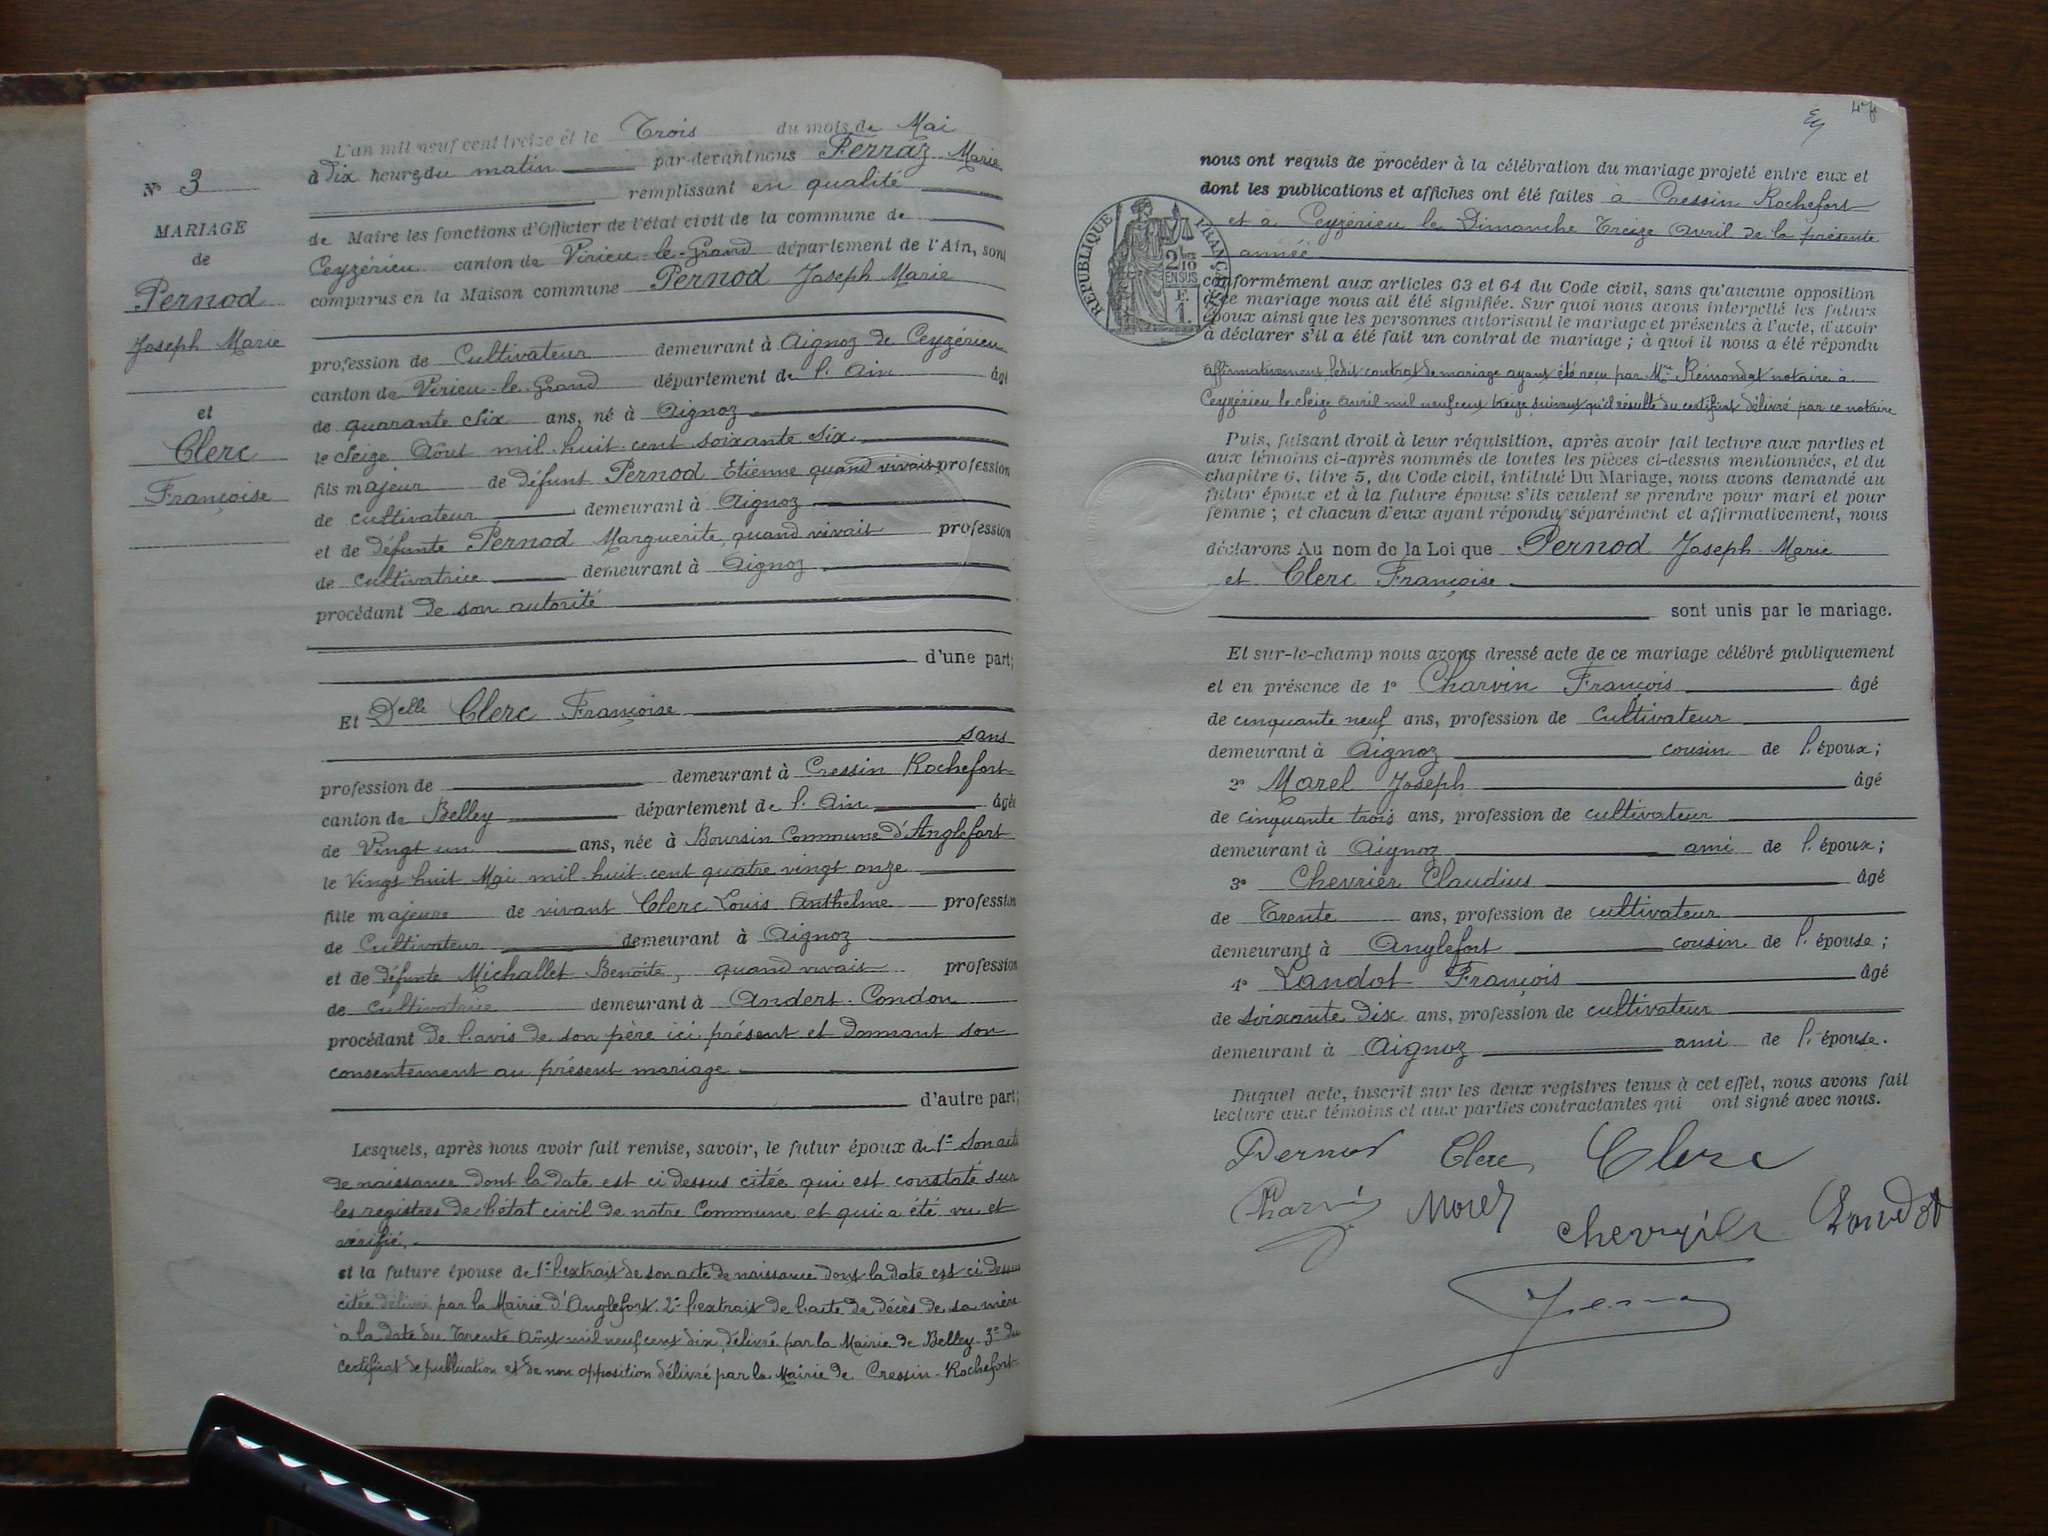 N° 3
MARIAGE
de
Pernod
Joseph Marie
et
Clerc
Françoise
L'an mil neuf cent treize et le Trois du mois de Mai
à Dix heures du matin par-devant nous Ferraz Marie
remplissant en qualité
de Maire les fonctions d'Officier de l'état civil de la commune de
Ceyzérieu canton de Virieu-le-Grand département de l'Ain, sont
comparus en la Maison commune Pernod Joseph Marie
profession de Cultivateur demeurant à Aignoz de Ceyzérieu
canton de Virieu-le-Grand département de l'Ain âgé
de quarante six ans, né à Aignoz
le Seize Août mil huit cent soixante six
fils majeur de défunt Pernod Etienne quand vivait profession
de cultivateur demeurant à Aignoz
et de défunte Pernod Marguerite quand vivait profession
de cultivatrice demeurant à Aignoz
procédant de son autorité
d'une part;
Et Delle Clerc Françoise
sans
profession de demeurant à Cressin Rochefort
canton de Belley département de l'Ain âgée
de Vingt un ans, née à Boursin Commune d'Anglefort
le Vingt huit Mai mil huit cent quatre vingt onze
fille majeure de vivant Clerc Louis Anthelme profession
de Cultivateur demeurant à Aignoz
et de défunte Michallet Benoite, quand vivait profession
de cultivatrice demeurant à Andert-Condon
procédant de l'avis de son père ici présent et donnant son
consentement au présent mariage
d'autre part;
Lesquels, après nous avoir fait remise, savoir, le futur époux de 1° Son acte
de naissance dont la date est ci dessus citée qui est constaté sur
les registres de l'état civil de notre Commune et qui a été vu et
vérifié.
et la future épouse de 1° l'extrait de son acte de naissance dont la date est ci dessus
citée délivré par la Mairie d'Anglefort. 2° l'extrait de l'acte de décès de sa mère
à la date du Trente Août mil neuf cent dix délivré par la Mairie de Belley 3° du
certificat de publication et de non opposition délivré par la Mairie de Cressin-Rochefort
47
nous ont requis de procéder à la célébration du mariage projeté entre eux et
dont les publications et affiches ont été faites à Cressin Rochefort
et à Ceyzérieu le Dimanche Treize Avril de la présente
année
RÉPUBLIQUE FRANÇAISE
2/10 EN SUS
F. 1.
conformément aux articles 63 et 64 du Code civil, sans qu'aucune opposition
à ce mariage nous ait été signifiée. Sur quoi nous avons interpellé les futurs
époux ainsi que les personnes autorisant le mariage et présentes à l'acte, d'avoir
à déclarer s'il a été fait un contrat de mariage; à quoi il nous a été répondu
affirmativement ledit contrat de mariage ayant été reçu par Me Reimondat notaire à
Ceyzérieu le Seize avril mil neuf cent treize suivant qu'il résulte du certificat délivré par ce notaire
Puis, faisant droit à leur réquisition, après avoir fait lecture aux parties et
aux témoins ci-après nommés de toutes les pièces ci-dessus mentionnées, et du
chapitre 6, titre 5, du Code civil, intitulé Du Mariage, nous avons demandé au
futur époux et à la future épouse s'ils veulent se prendre pour mari et pour
femme; et chacun d'eux ayant répondu séparément et affirmativement, nous
déclarons Au nom de la Loi que Pernod Joseph Marie
et Clerc Françoise
sont unis par le mariage.
Et sur-le-champ nous avons dressé acte de ce mariage célébré publiquement
et en présence de 1° Charvin François âgé
de cinquante neuf ans, profession de Cultivateur
demeurant à Aignoz cousin de l'époux;
2° Morel Joseph âgé
de cinquante trois ans, profession de cultivateur
demeurant à Aignoz ami de l'époux;
3° Chevrier Claudius âgé
de Trente ans, profession de cultivateur
demeurant à Anglefort cousin de l'épouse;
4° Landot François âgé
de soixante dix ans, profession de cultivateur
demeurant à Aignoz ami de l'épouse.
Duquel acte, inscrit sur les deux registres tenus à cet effet, nous avons fait
lecture aux témoins et aux parties contractantes qui ont signé avec nous.
Pernod Clerc Clerc
Charvin Morel chevrier Landot